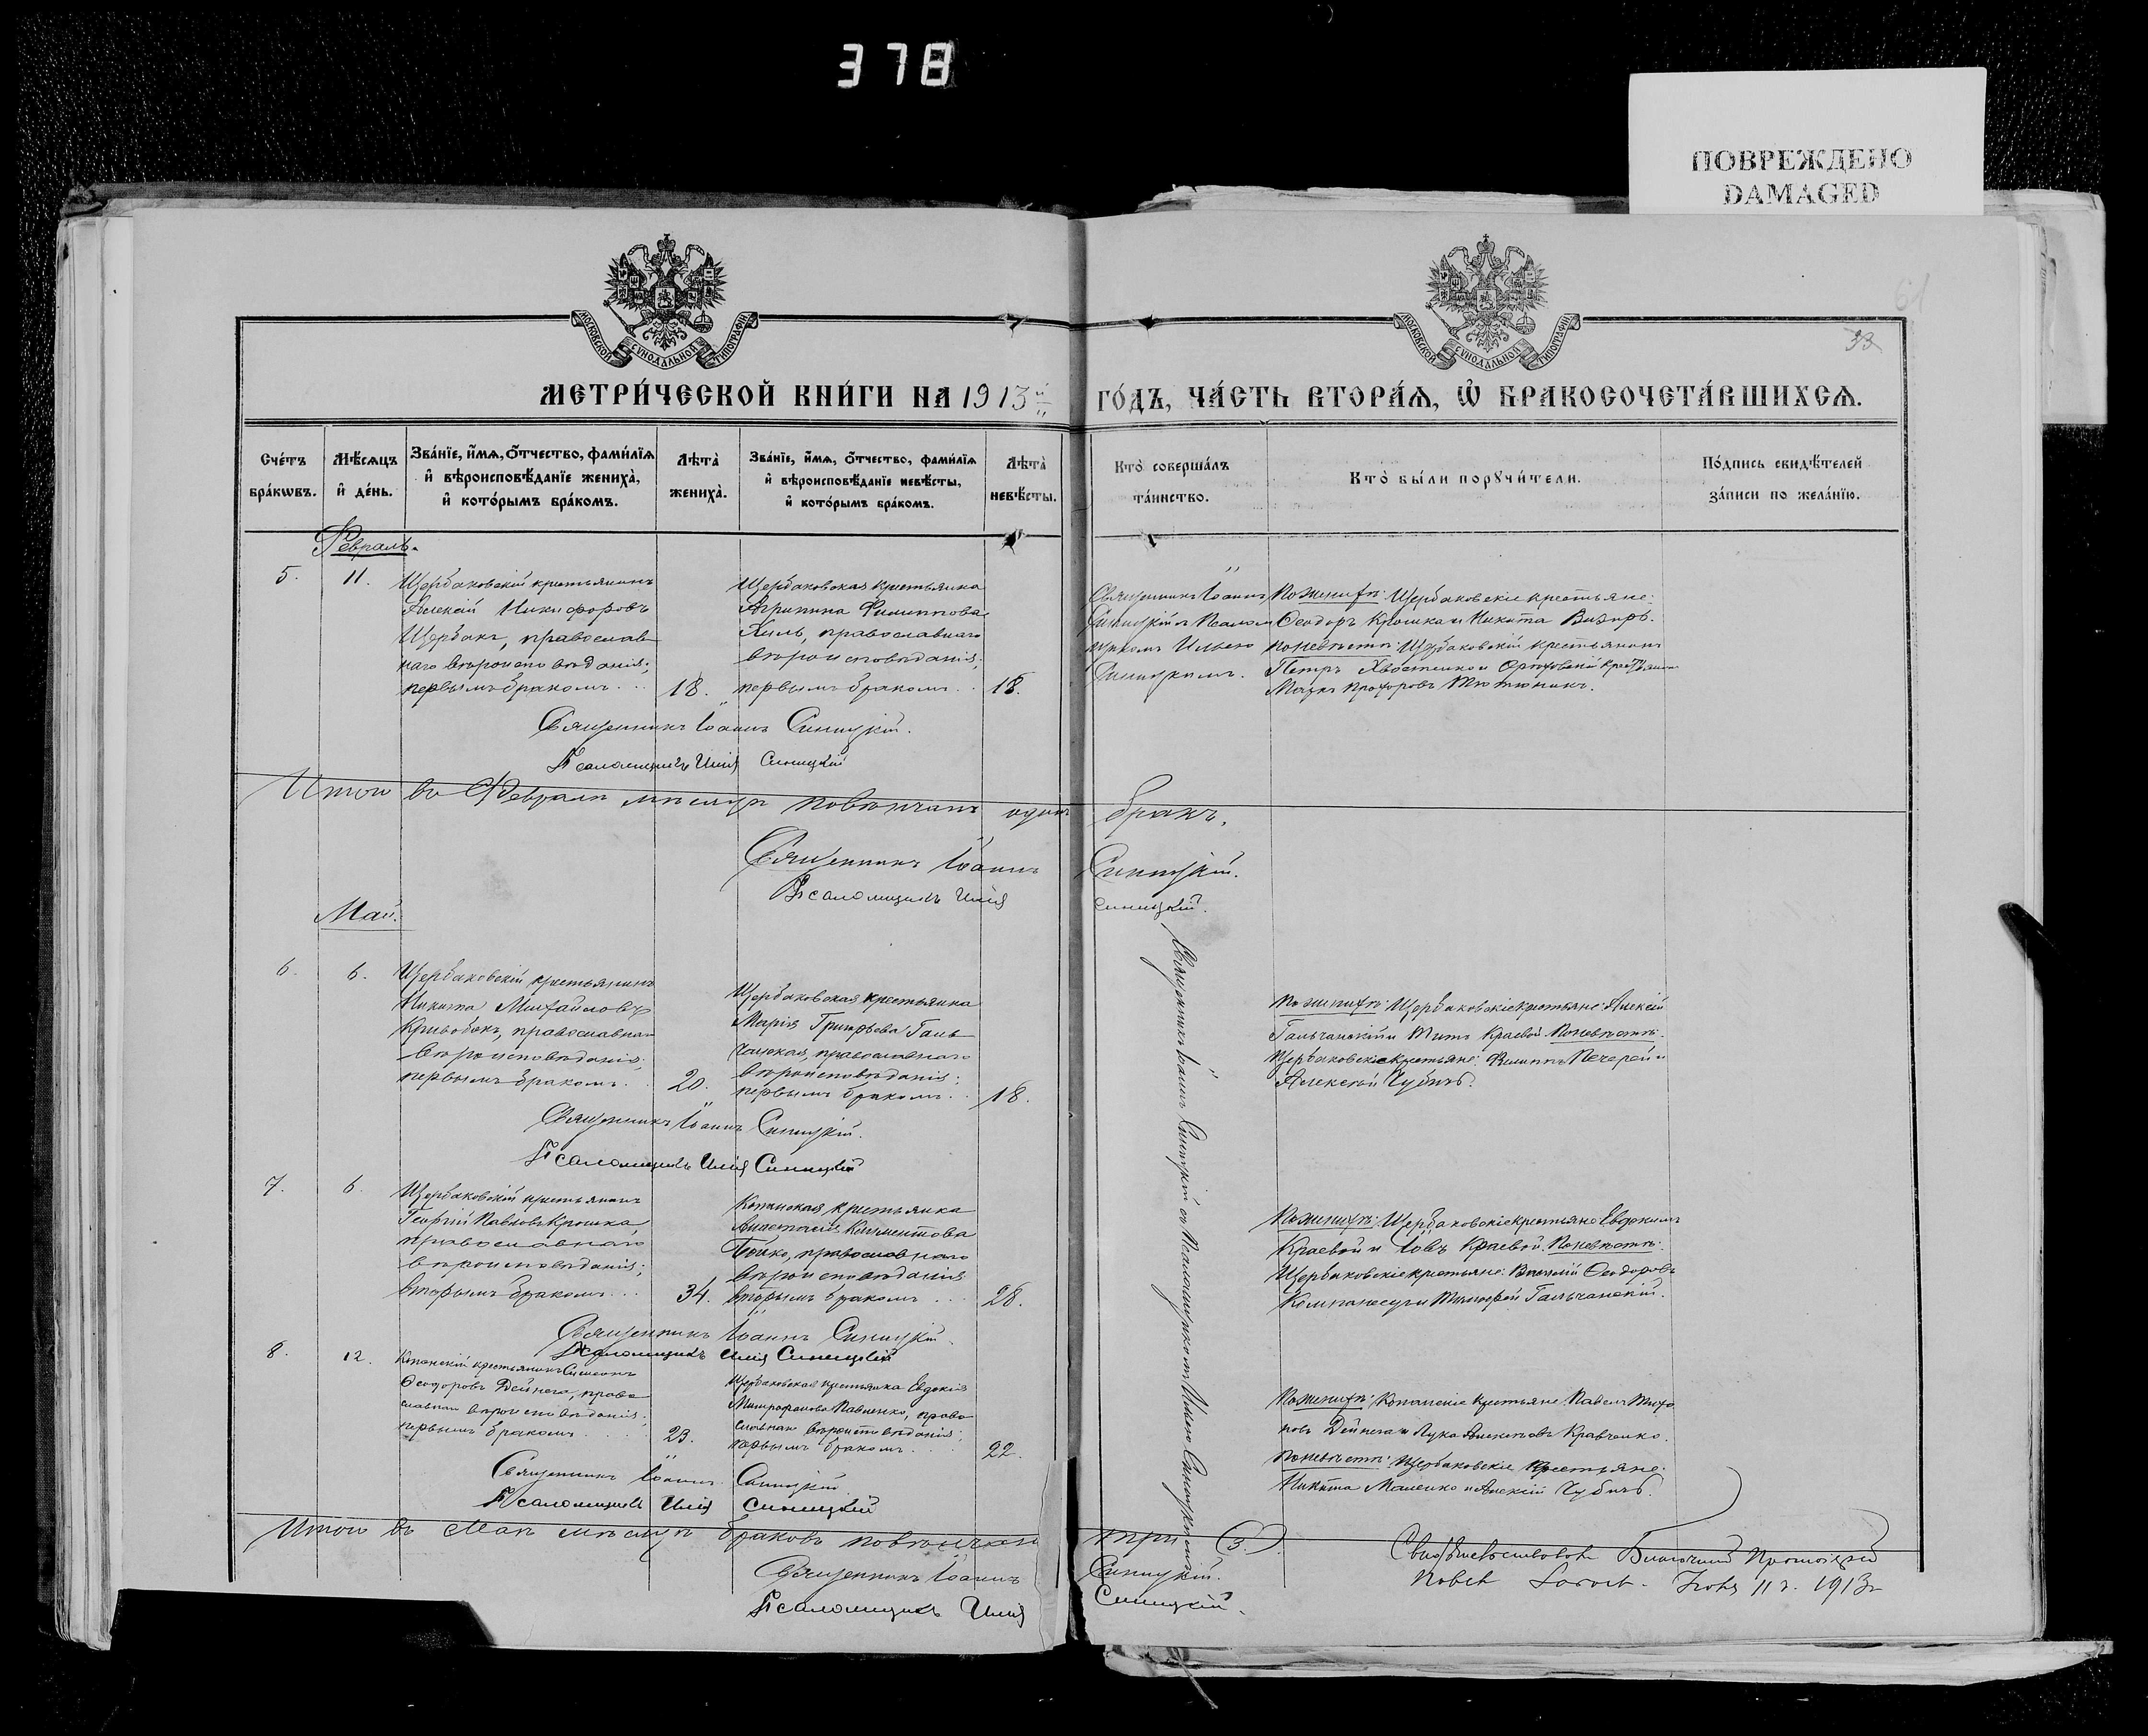 378
ПОВРЕЖДЕНО
DAMAGED
МОСКОВСКОЙ СѴНОДАЛЬНОЙ ТИПОГРАФІИ
МОСКОВСКОЙ СѴНОДАЛЬНОЙ ТИПОГРАФІИ
61
33
МЕТРИ́ЧЕСКОЙ КНИ́ГИ НА 1913й ГО́ДЪ, ЧА́СТЬ ВТОРА́Ѧ, Ѿ БРАКОСОЧЕТА́ВШИХСѦ.
Сче́тъ бра́кωвъ.
Мѣ́сяцъ и҆ де́нь.
Зва́нїе, и҆́мѧ, ѻ҆́тчество, фами́лїѧ
и҆ вѣроисповѣ́данїе жениха̀,
и҆ кото́рымъ бра́комъ.
Лѣта̀ жениха̀.
Зва́нїе, и҆́мѧ, ѻ҆́тчество, фами́лїѧ
и҆ вѣроисповѣ́данїе невѣ́сты,
и҆ кото́рымъ бра́комъ.
Лѣта̀ невѣ́сты.
Кто̀ соверша́лъ
та́инство.
Кто̀ бы́ли порꙋчи́тели.
По́дпись свидѣ́телей
за́писи по жела́нїю.
Февраль.
5. 11.
Щербаковскій крестьянинъ
Алексій Никифоровъ
Щербакъ, православ
наго вѣроисповѣданія;
первымъ бракомъ... 18.
Щербаковская крестьянка
Агрипина Филиппова
Хиль, православнаго
вѣроисповѣданія;
первымъ бракомъ.. 18.
Священникъ Іоаннъ
Синицкій съ Псалом
щикомъ Ильею
Синицкимъ.
По женихѣ: Щербаковскіе крестьяне:
Ѳеодоръ Крошка и Никита Визиръ.
по невѣстѣ: Щербаковскій крестьянинъ
Петръ Хвостенко и крестьянинъ
Прохоровъ Тютюникъ.
Священникъ Іоаннъ Синицкій.
Псаломщикъ Илія Синицкій
Итого въ Февралѣ мѣсяцѣ повѣнчанъ одинъ бракъ.
Священникъ Іоаннъ Синицкій.
Псаломщикъ Илія Синицкій.
Май.
6. 6.
Щербаковскій крестьянинъ
Никита Михайловъ
Кривобокъ, православнаго
вѣроисповѣданія;
первымъ бракомъ.. 20.
Щербаковская крестьянка
Марія Григорьева Галь
чанская, православнаго
вѣроисповѣданія;
первымъ бракомъ.. 18.
По женихѣ: Щербаковскіе крестьяне: Алексій
Гальчанскій и Титъ Краевой. По невѣстѣ:
Щербаковскіе крестьяне: Филиппъ Печерей и
Алексѣй Чубичъ.
Священникъ Іоаннъ Синицкій.
Псаломщикъ Илія Синицкій
7. 6.
Щербаковскій крестьянинъ
Георгій Павловъ Крошка,
православнаго
вѣроисповѣданія;
вторымъ бракомъ... 34.
Копанская крестьянка
Анастасія Климентова
Бойко, православнаго
вѣроисповѣданія
вторымъ бракомъ... 28.
По женихѣ: Щербаковскіе крестьяне Евдокимъ
Краевой и Іовъ Краевой. По невѣстѣ:
Щербаковскіе крестьяне: Василій Ѳеодоровъ
Компанеецъ и Тимофей Гальчанскій.
Священникъ Іоаннъ Синицкій
Псаломщикъ Илія Синицкій
8. 12.
Копанскій крестьянинъ Симеонъ
Ѳеодоровъ Дейнега, право
славнаго вѣроисповѣданія;
первымъ бракомъ.... 23.
Щербаковская крестьянка Евдокія
Митрофанова Павленко, право
славнаго вѣроисповѣданія;
первымъ бракомъ.... 22.
По женихѣ: Копанскіе крестьяне: Павелъ Тихо
новъ Дейнега и Лука Алексѣевъ Кравченко.
По невѣстѣ: Щербаковскіе крестьяне:
Никита Маленко и Алексій Чубичъ.
Священникъ Іоаннъ Синицкій съ Псаломщикомъ Ильею Синицкимъ
Священникъ Іоаннъ Синицкій
Псаломщикъ Илія Синицкій
Итого въ Маѣ мѣсяцѣ браковъ повѣнчано три (3).
Священникъ Іоаннъ Синицкій.
Псаломщикъ Илія Синицкій.
Свидѣтельствовалъ Благочинный Протоіерей
11 1913г